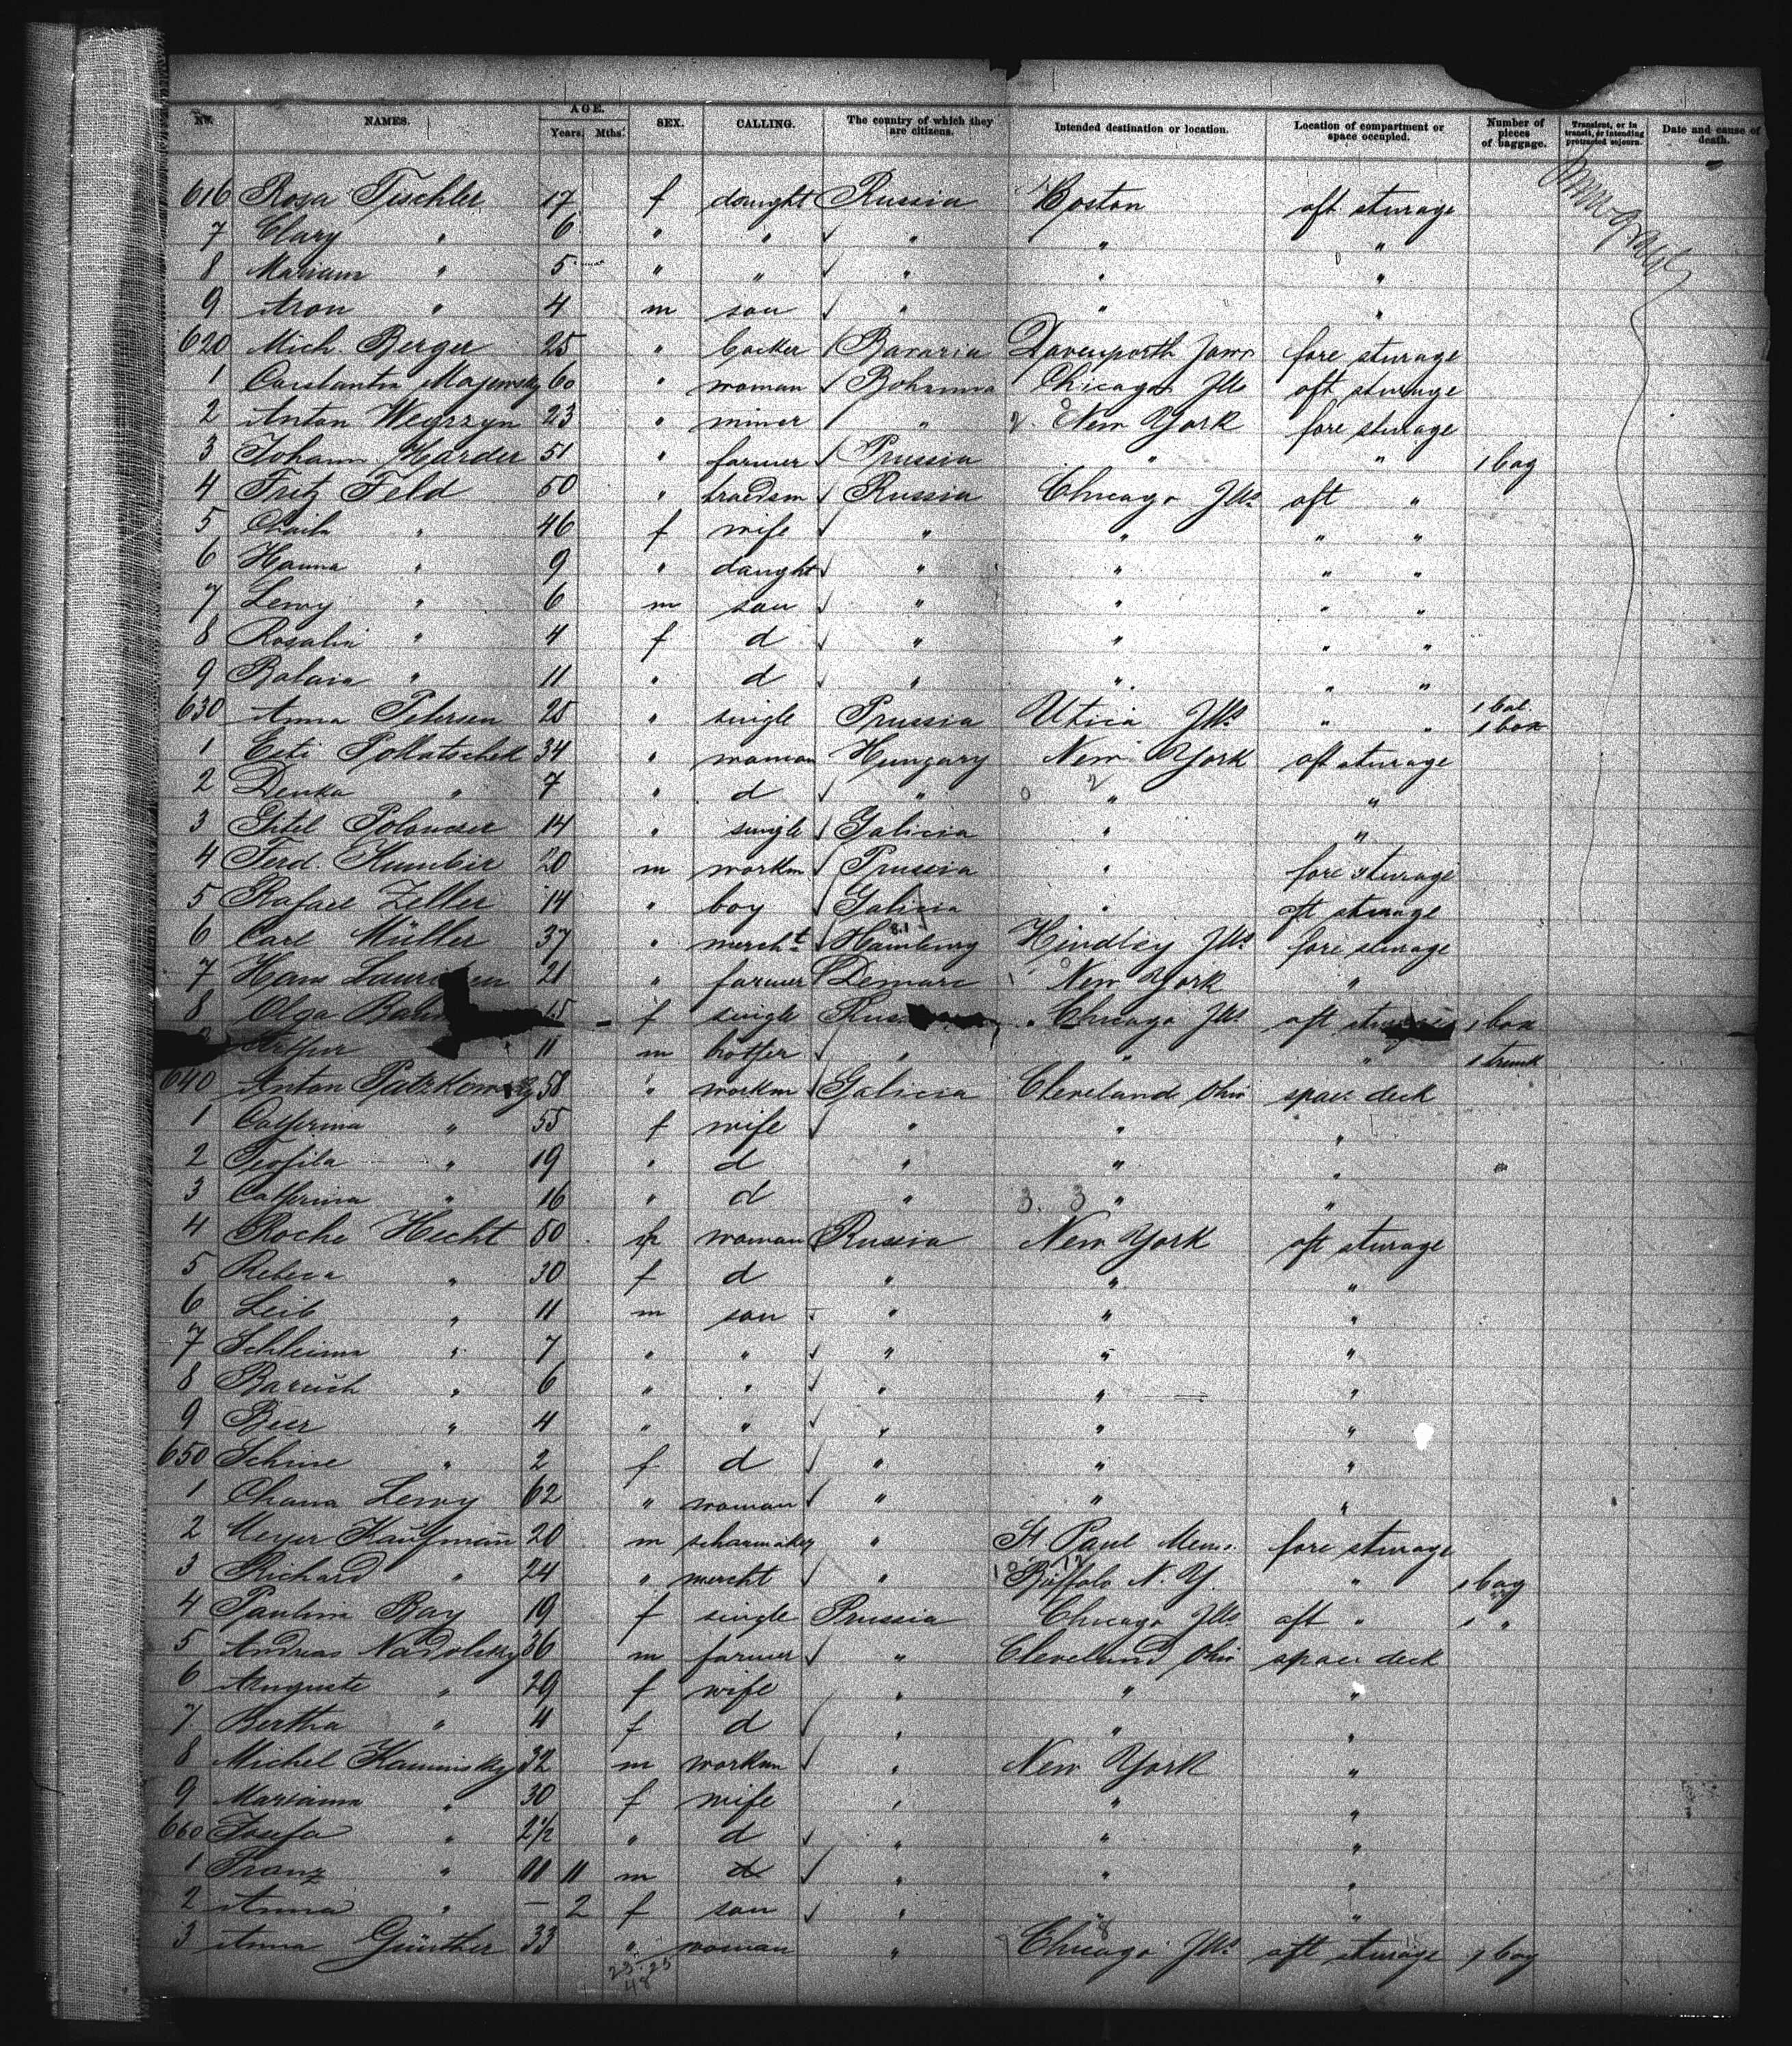 No. NAMES. AGE. Years. Mths. SEX. CALLING. The country of which they are citizens. Intended destination or location. Location of compartment or space occupied. Number of pieces of baggage. Transient, or in transit, or intending protracted sojourn. Date and cause of death.
616 Rosa Tischler 17 f daught Russia Boston aft sturage
7 Clary " 6 " " " " "
8 Mariam " 5 " " " " "
9 Aron " 4 m son " " "
620 Mich. Berger 25 " Bavaria Davenporth Jowa fore sturage
1 Constantia Majewsky 60 " woman Bohemia Chicago Ills aft sturage
2 Anton Wegrzyn 23 " miner " New York fore sturage
3 Johann Harder 51 " farmer Prussia " " 1 bag
4 Fritz Feld 50 " traedsm Russia Chicago Ills aft "
5 " 46 f wife " " " "
6 Hanna " 9 " daught " " " "
7 Lewy " 6 m son " " " "
8 Rosalia " 4 f d " " " "
9 " 11 " d " " " "
630 Anna Petersen 25 " single Prussia Utica Ills " " 1 bal. 1 box
1 Esti Pollatschek 34 " woman Hungary New York aft sturage
2 Denka " 7 " d " " "
3 Gitel 14 " single Galicia " "
4 Ferd. Kumbir 20 m workm Prussia " fore sturage
5 Rafael Zeller 14 " boy Galicia " aft sturage
6 Carl Müller 37 " mercht Hamburg Hindley Ills fore sturage
7 Hans 21 " farmer Demarc New York "
8 Olga 15 f single Chicago Ills aft sturage 1 box
Arthur 11 m brother " " " 1 trunk
640 Anton Patzkowsky 58 " workm Galicia Cleveland Ohio spaer deck
1 Catherina " 55 f wife " " "
2 Teofila " 19 " d " " "
3 Catherina " 16 " d " " "
4 Roche Hecht 50 f woman Russia New York aft sturage
5 Rebeca " 30 f d " " "
6 Leib " 11 m son " " "
7 Schleima " 7 " " " " "
8 Baruch " 6 " " " " "
9 Beer " 4 " " " " "
650 Schine " 2 f d " " "
1 Chana Lewy 62 " woman " " "
2 Meyer Kaufmann 20 m schoemaker " St Paul Menn. fore sturage
3 Richard " 24 " mercht " Buffalo N. Y. " 1 bag
4 Paulina Bay 19 f single Prussia Chicago Ills aft " 1 "
5 Andreas Nadolsky 36 m farmer " Cleveland Ohio spaer deck
6 Auguste " 29 f wife " " "
7 Bertha " 4 f d " " "
8 Michel Kaminsky 32 m workm " New York "
9 Marianna " 30 f wife " " "
660 Josefa " 2½ " d " " "
1 Franz " 11 m d " " "
2 Anna " — 2 f son " " "
3 Anna Günther 33 " woman " Chicago Ills aft sturage 1 bag
23-25
48